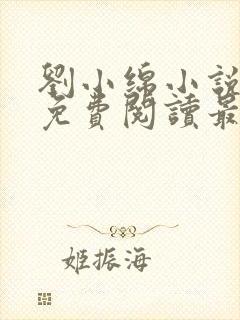 劉小綿小說
免費閱讀最
姬振海